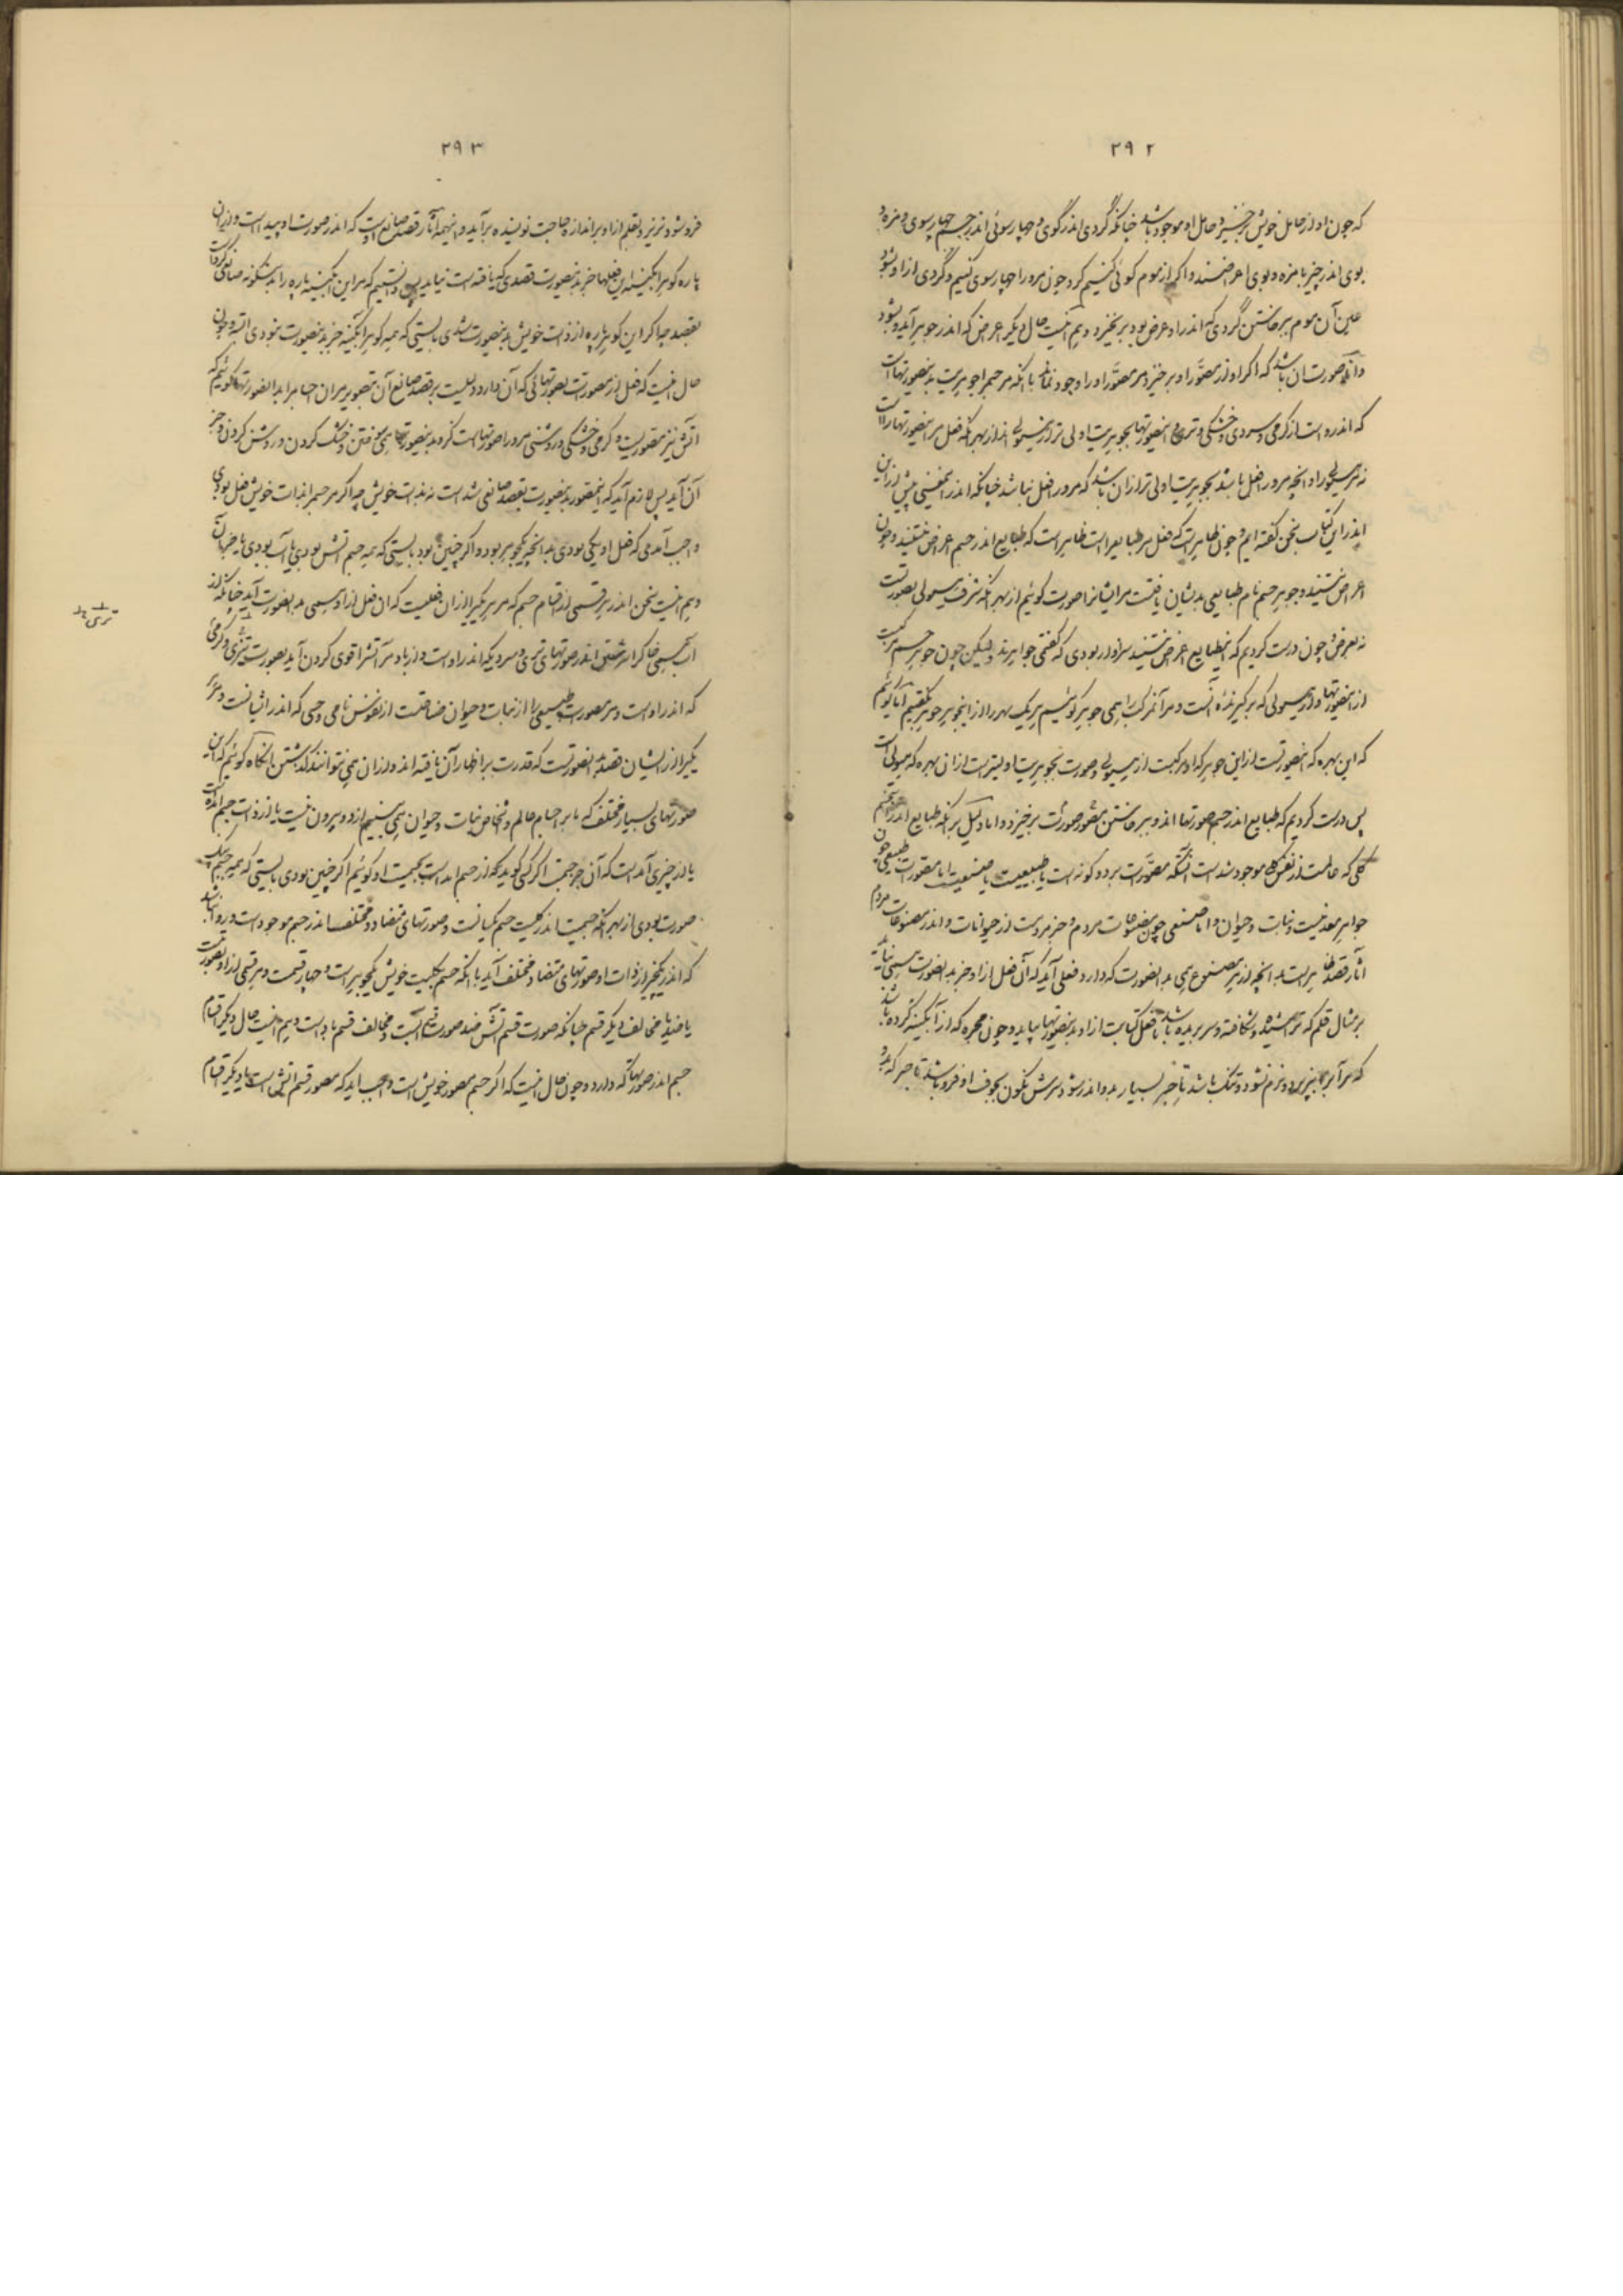 ۲۹۲
که چون او از حامل خویش برخیزد حامل او موجود باشد چنانکه گردی اندر گوی و چهارسوئی اندر جسم چهارسوی و مزه و
بوی اندر چیز با مزه و بوی اعراضند و اگر از موم گوئی کنیم گرد و چون مرو را چهارسوی کنیم و گردی ازاو بشود
عین آن موم ببرخاستن گردی که اندر او عرض بود برنخیزد و هم اینست حال دیگر اعراض که اندر جوهر آید و بشود
و آنچه صورت آن باشد که اگر او از مصوَّر او برخیزد مر مصوَّر او را وجود نماند با آنکه مر جسم را جوهریت بدین صورتهاست
که اندروست از گرمی و سردی و خشکی و تری و این صورتها بجوهریت اولی تر از هیولی اند از بهر آنکه فعل مر این صورتها راست
نه هیولی را و آنچه مرورا فعل باشد بجوهریت اولی تر از آن باشد که مرورا فعل نباشد چنانکه اندر این معنی پیش از این
اندر این کتاب سخن گفته ایم و چون ظاهر است که فعل مر طبایع راست ظاهر است که طبایع اندر جسم اعراض نیستند و چون
اعراض نیستند و جوهر جسم نام طبایعی بدیشان یافتست مر ایشانرا صورت گوئیم از بهر آنکه شرف هیولی بصورتست
نه بعرض و چون درست کردیم که این طبایع اعراض نیستند سزاوار بودی که گفتمی جواهرند ولیکن چون جوهر جسم مرکبست
از این صورتها و از هیولی که برگیرنده آنست و مر آن مرکب را همی جوهر گوئیم هر یک بهر را از این جوهر جوهر نگفتیم اما گوئیم
که این بهره که این صورتست از این جوهر که او مرکبست از هیولی و صورت بجوهریت اولیترست از آن بهره که هیولی است
پس درست کردیم که طبایع اندر جسم صورتها اند و ببرخاستن صورت مصور برخیزد و اما دلیل بر آنکه طبایع اندر جسم
کلی که عالمست از نفس کل موجود شده است آنست که مصوَّرات بر دو گونه است یا طبیعیست یا صنعیست اما مصورات طبیعی چون
جواهر معدنیست و نبات و حیوان و اما صنعی چون مصنوعات مردم و جز مردمست از حیوانات و اندر مصنوعات مردم
آثار قصد ظاهر است بدانچه از هر مصنوع همی بدانصورت که دارد فعلی آید که آن فعل از او جز بدانصورت همی نیاید
بر مثال قلم که تراشیده و شکافته و سر بریده باشد تا فعل کتابت از او بدین صورتها بیاید و چون محبره که از آبگینه کرده باشند
که مر آب را بپذیرد و نرم نشود و تنگ باشد تا حبر بسیار بدو اندر شود و سرش نگون بجوف او فرو باشد تا حبر که بدو
۲۹۳
فروشود نریزد و بقلم از او بر اندازه حاجت نویسنده برآید و اینهمه آثار قصد صانع اوست که اندر صورت او پیداست و از آن
پاره گوهر آبگینه این فعلها جز بدین صورت قصدی که یافته است نیاید پس دانستیم که مر این آبگینه پاره را بدینگونه صانعی کردست
بقصد چه اگر این گوهر پاره از ذات خویش بدین صورت شدی بایستی که همه گوهر آبگینه جز بدین صورت نبودی البته و چون
حال اینست که فعل از مصورات بصورتهائی که آن دارد دلیلست بر قصد صانع آن بتصویر مر آن اجسام را بدان صورتها گوئیم که
آتش نیز مصوریست و گرمی و خشکی و روشنی مرورا صورتهاست کزو بدین صورتها همی سوختن و خشک کردن و روشن کردن و جز
آن آید پس لازم آید که این مصور بدین صورت بقصد صانعی شده است نه بذات خویش چه اگر مر جسم را بذات خویش فعل بودی
واجب آمدی که فعل او یکی بودی بدانچه یکجوهر بود و اگر چنین بود بایستی که همه جسم آتش بودی یا آب بودی یا جز آن
و هم اینست سخن اندر هر قسمی از اقسام جسم که مر هر یکی را از آن فعلیست که آن فعل از او همی بدانصورت آید چنانکه از
آب همی خاک را سرشتن اندر صورتهای تری و سردی که اندر اوست و از باد مر آتش را قوی کردن آید بصورت تری و گرمی
که اندر اوست و مر صورتهای طبیعی را از نبات و حیوان صانعست از نفوس نامی و حسی که اندر ایشانست و مر
یکی را از ایشان قصد بدانصورتست که قدرت بر اظهار آن یافته اند و از آن همی نتوانند گذشتن آنگاه گوئیم که این
صورتهای بسیار مختلف که ما بر اجسام عالم و اشخاص نبات و حیوان همی بینیم از دو بیرون نیست یا از ذات جسم آمده است
یا از چیزی آمده است که آن جز جسمست اگر کسی گوید که از جسم آمده است بجسمیت او گوئیم اگر چنین بودی بایستی که همه جسم بیک
صورت بودی از بهر آنکه جسمیت اندر کلیت جسم یکسانست و صورتهای متضاد و مختلف اندر جسم موجود است و روا نباشد
که اندر یکچیز از ذات او صورتهای متضاد و مختلف آید با آنکه جسم بکلیت خویش یکجوهر است و چهار قسمست و هر قسمی از او بصورت
یا ضد یا مخالف دیگر قسم چنانکه صورت قسم آتش ضد صورت قسم آبست و مخالف قسم باد است و هم اینست حال دیگر اقسام
جسم اندر صورتها که دارد و چون حال اینست که اگر جسم مصور خویش است واجب آید که مصور قسم آتشی است یا دیگر اقسام